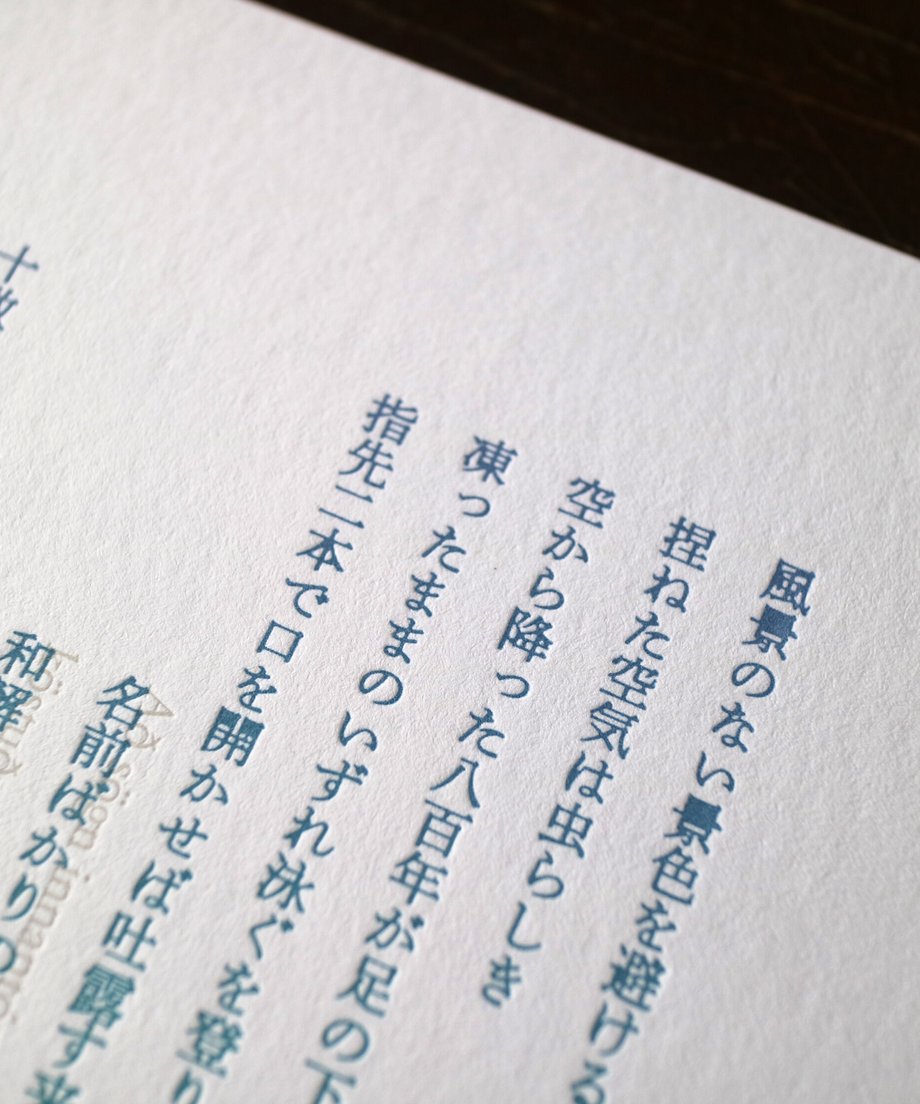 風景のない景色を避ける
捏ねた空気は虫らしき
空から降った八百年が足の下
凍ったままのいずれ泳ぐを登り
指先二本で口を開かせば吐露す
名前ばかりの
和解
十